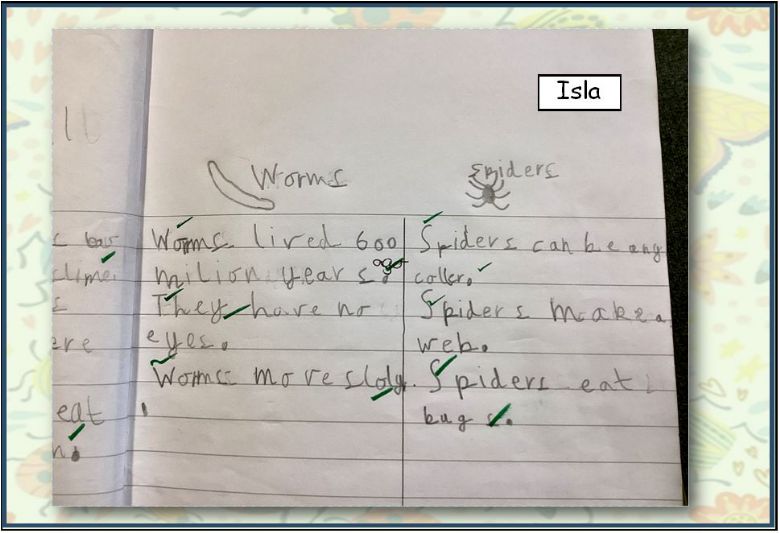 Isla
Worms
Spiders
Worms lived 600
milion years.
They have no
eyes.
Worms move sloly.
Spiders can be any
coller.
Spiders make a
web.
Spiders eat
bugs.
slime
ere
eat